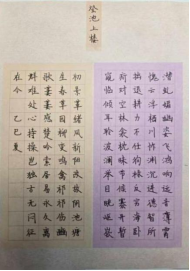 登池上楼
潜虬媚幽姿飞鸿响远音薄霄
愧云浮栖川怍渊沉进德智所
拙退耕力不任徇禄反穷海卧
疴对空林衾枕昧节候褰开暂
窥临倾耳聆波澜举目眺岖嵚
初景革绪风新阳改故阴池塘
生春草园柳变鸣禽祁祁伤豳
歌萋萋感楚吟索居易永久离
群难处心持操岂独古无闷征
在今 乙巳夏